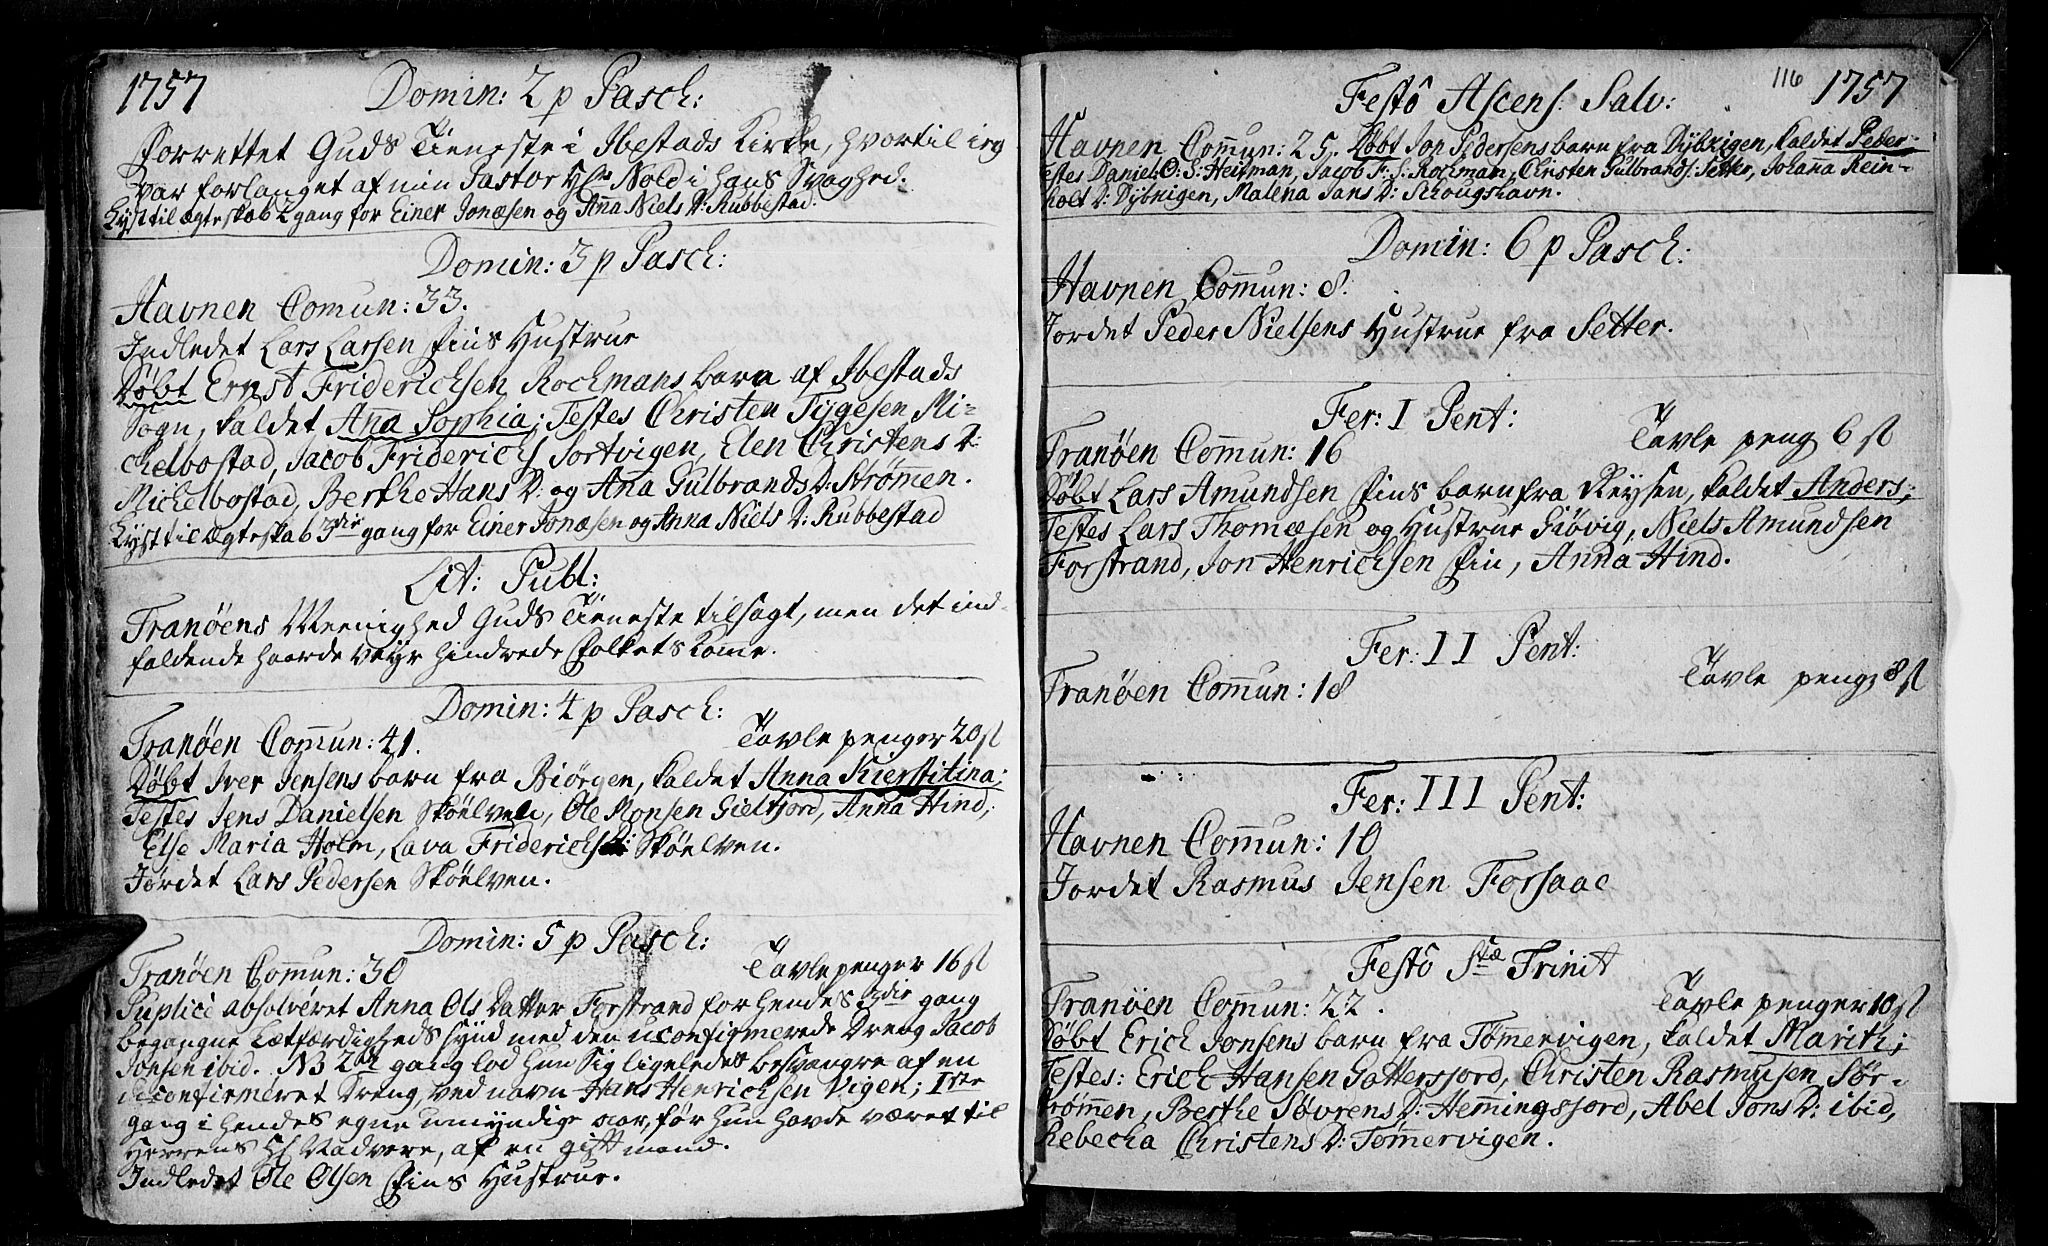 1757
Domin: 2 p Pasch:
Forrettet Guds Tieneste i Ibestads Kirke, hvortil ieg
var forlanget af min Pastor Hr Nold i hans Svaghed.
Lyst til Ægteskab 2 gang for Einer Jonæsen og Anna Niels D: Rubbestad.
Domin: 3 p Pasch:
Havnen Comun: 33.
Indledet Lars Larsen Fins Hustrue
Døbt Ernst Friderichsen Rochmans barn af Ibestads
Sogn, kaldet Anna Sophia; Testes Christen Tygesen Mi-
chelbostad, Jacob Friderichs Sortvigen, Elen Christens D:
Michelbostad, Berthe Hans D: og Ana Gulbrands D: Strømmen.
Lyst til Ægteskab 3die gang for Einer Jonæsen og Anna Niels D: Rubbestad
Lit: Publ:
Tranöens Meenighed Guds Tieneste tilsagt, men det ind-
faldende haarde Veyr hindrede Folkets Kome.
Domin: 4 p Pasch:
Tranöen Comun: 41.
Tavle penger 20 st
Døbt Iver Jensens barn fra Biörgen, kaldet Anna Kierstitina;
Testes Jens Danielsen Sköelven, Ole Monsen Gieltfjord, Anna Hind,
Else Maria Holm, Lava Friderichs D: Sköelven.
Jordet Lars Pedersen Sköelven.
Domin: 5 p Pasch:
Tranöen Comun: 30
Tavlepenger 16 st
Puplicè absolveret Anna Ols Datter Forstrand for hendes 3die gang
begangne Letfærdigheds synd med den uconfirmerede Dreng Jacob
Jonsen ibid. NB 2den gang lod hun sig ligeledes besvangre af en
uconfirmeret Dreng, ved navn Hans Henrichsen Vigen; 1ste
gang i hendes egne umyndige aar, før hun havde været til
Herrens H. Nadvere, af en gift mand.
Indledet Ole Olsen Fins Hustrue.
116 1757
Festo Ascens: Salv:
Havnen Comun: 25. Døbt Jon Pedersens barn fra Dybvigen, kaldet Peder;
Testes Daniel O. S: Heitman, Jacob F: S. Rochman, Christen Gulbrands: Setter, Johanna Rein-
holt D: Dybvigen, Malena Jans D: Schougshavn.
Domin: 6 p Pasch:
Havnen Comun: 8.
Jordet Peder Nielsens Hustrue fra Setter.
Fer: I Pent:
Tranöen Comun: 16
Tavle peng 6 st
Døbt Lars Amundsen Fins barn fra Reysen, kaldet Anders;
Testes Lars Thomæsen og Hustrue Giövig, Niels Amundsen
Forstrand, Jon Henrichsen Fin, Anna Hind.
Fer: II Pent:
Tranöen Comun: 18
Tavle peng 8 st
Fer: III Pent:
Havnen Comun: 10
Jordet Rasmus Jensen Forsaae
Festo Stæ Trinit
Tranöen Comun: 22.
Tavle penger 10 st
Døbt Erich Jonsens barn fra Tömervigen, kaldet Marith;
Testes: Erich Hansen Gattersfjord, Christen Rasmusen Sör-
strömen, Berthe Sövrens D: Hemingsfjord, Abel Jons D: ibid,
Rebecha Christens D: Tömervigen.